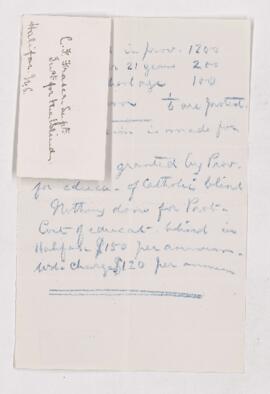 C. F. Fraser, Supt.
Inst for the Blind
Halifax N.S
in prov. 1200
21 years 200
age 100
1/6 are protest.
is made for
granted by Prov.
for educa. of Catholic blind
Nothing done for Prot
Cost of educat. blind in
Halifax $150 per annum.
charge $120 per annum